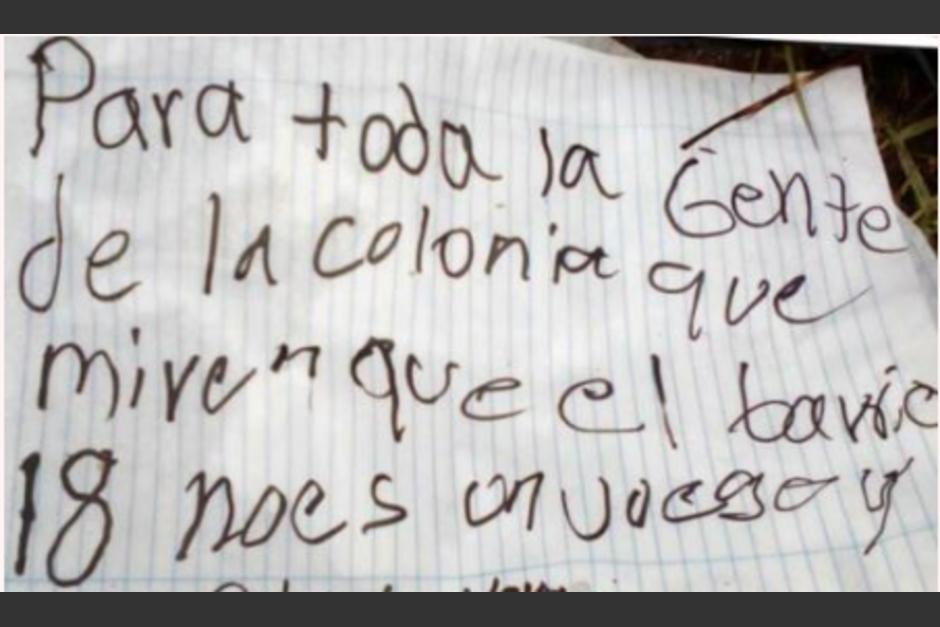 Para toda la Gente
de la colonia que
miren que el bavio
18 noes un juego y